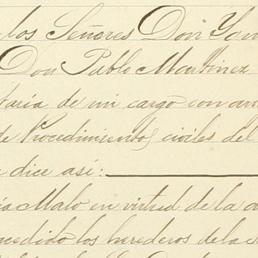 los Señores Don Yan
Don Pablo Martinez
taria de mi cargo con au
de Procedimientos civiles del
e dice así:
ia Malo en virtud de la a
ncedido los herederos de la s